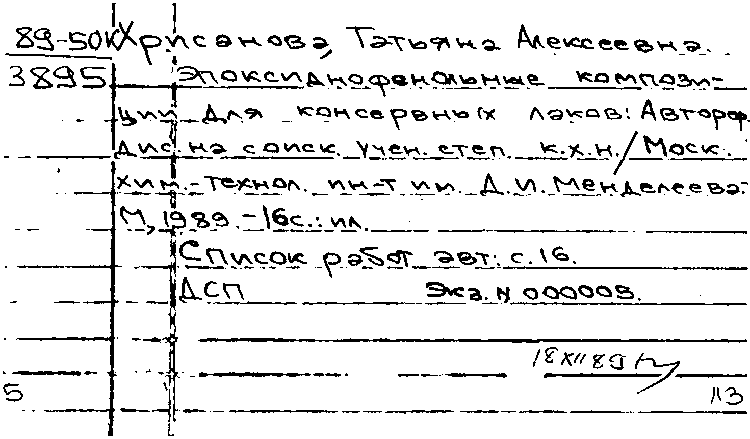 89-50К Хрисанова, Татьяна Алексеевна.
3895 Эпоксиднофенольные компози-
ции для консервных лаков: Автореф.
дис. на соиск. учен. степ. к.х.н. / Моск.
хим.-технол. ин-т им. Д.И. Менделеева.-
М, 1989.-16с.: ил.
Список работ авт.: с.16.
ДСП Экз. N 000003.
18 XII 89
5 113